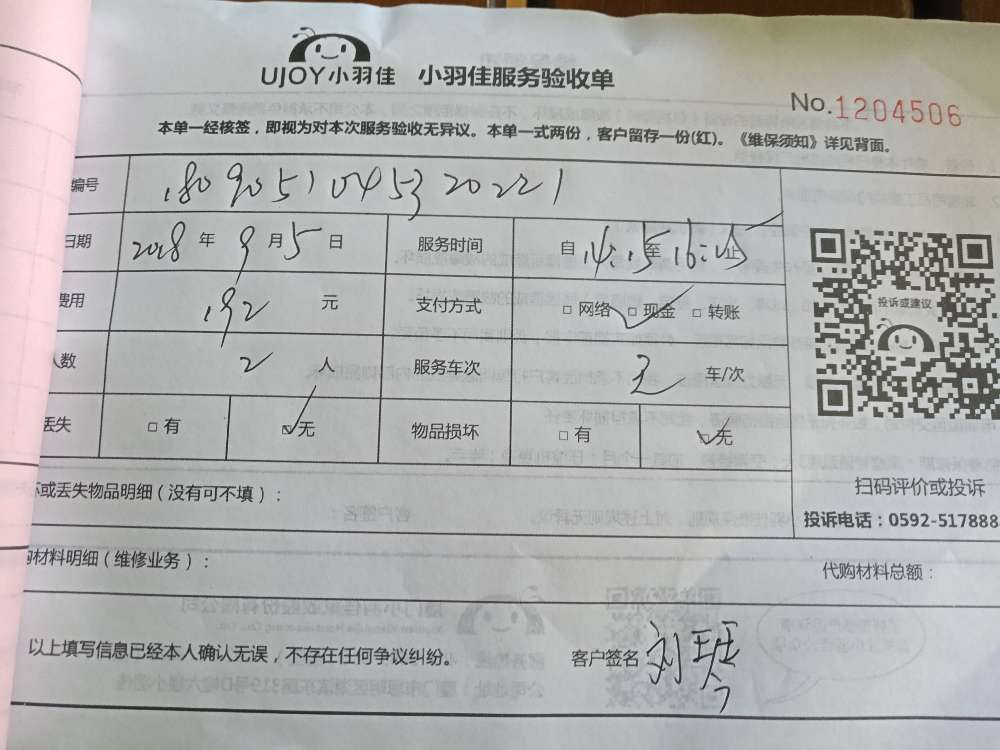 UJOY小羽佳 小羽佳服务验收单
No.1204506
本单一经核签，即视为对本次服务验收无异议。本单一式两份，客户留存一份(红)。《维保须知》详见背面。
编号 1809051045320221
日期 2018 年 9 月 5 日 服务时间 自 14:15 至 16:15 止
费用 192 元 支付方式 □ 网络 □ 现金 □ 转账
人数 2 人 服务车次 2 车/次
丢失 □ 有 ☑ 无 物品损坏 □ 有 ☑ 无
投诉或建议
扫码评价或投诉
投诉电话：0592-517888
坏或丢失物品明细（没有可不填）：
购材料明细（维修业务）： 代购材料总额：
以上填写信息已经本人确认无误，不存在任何争议纠纷。 客户签名 刘班